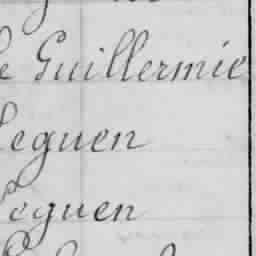 Le Guillermic
Leguen
Leguen